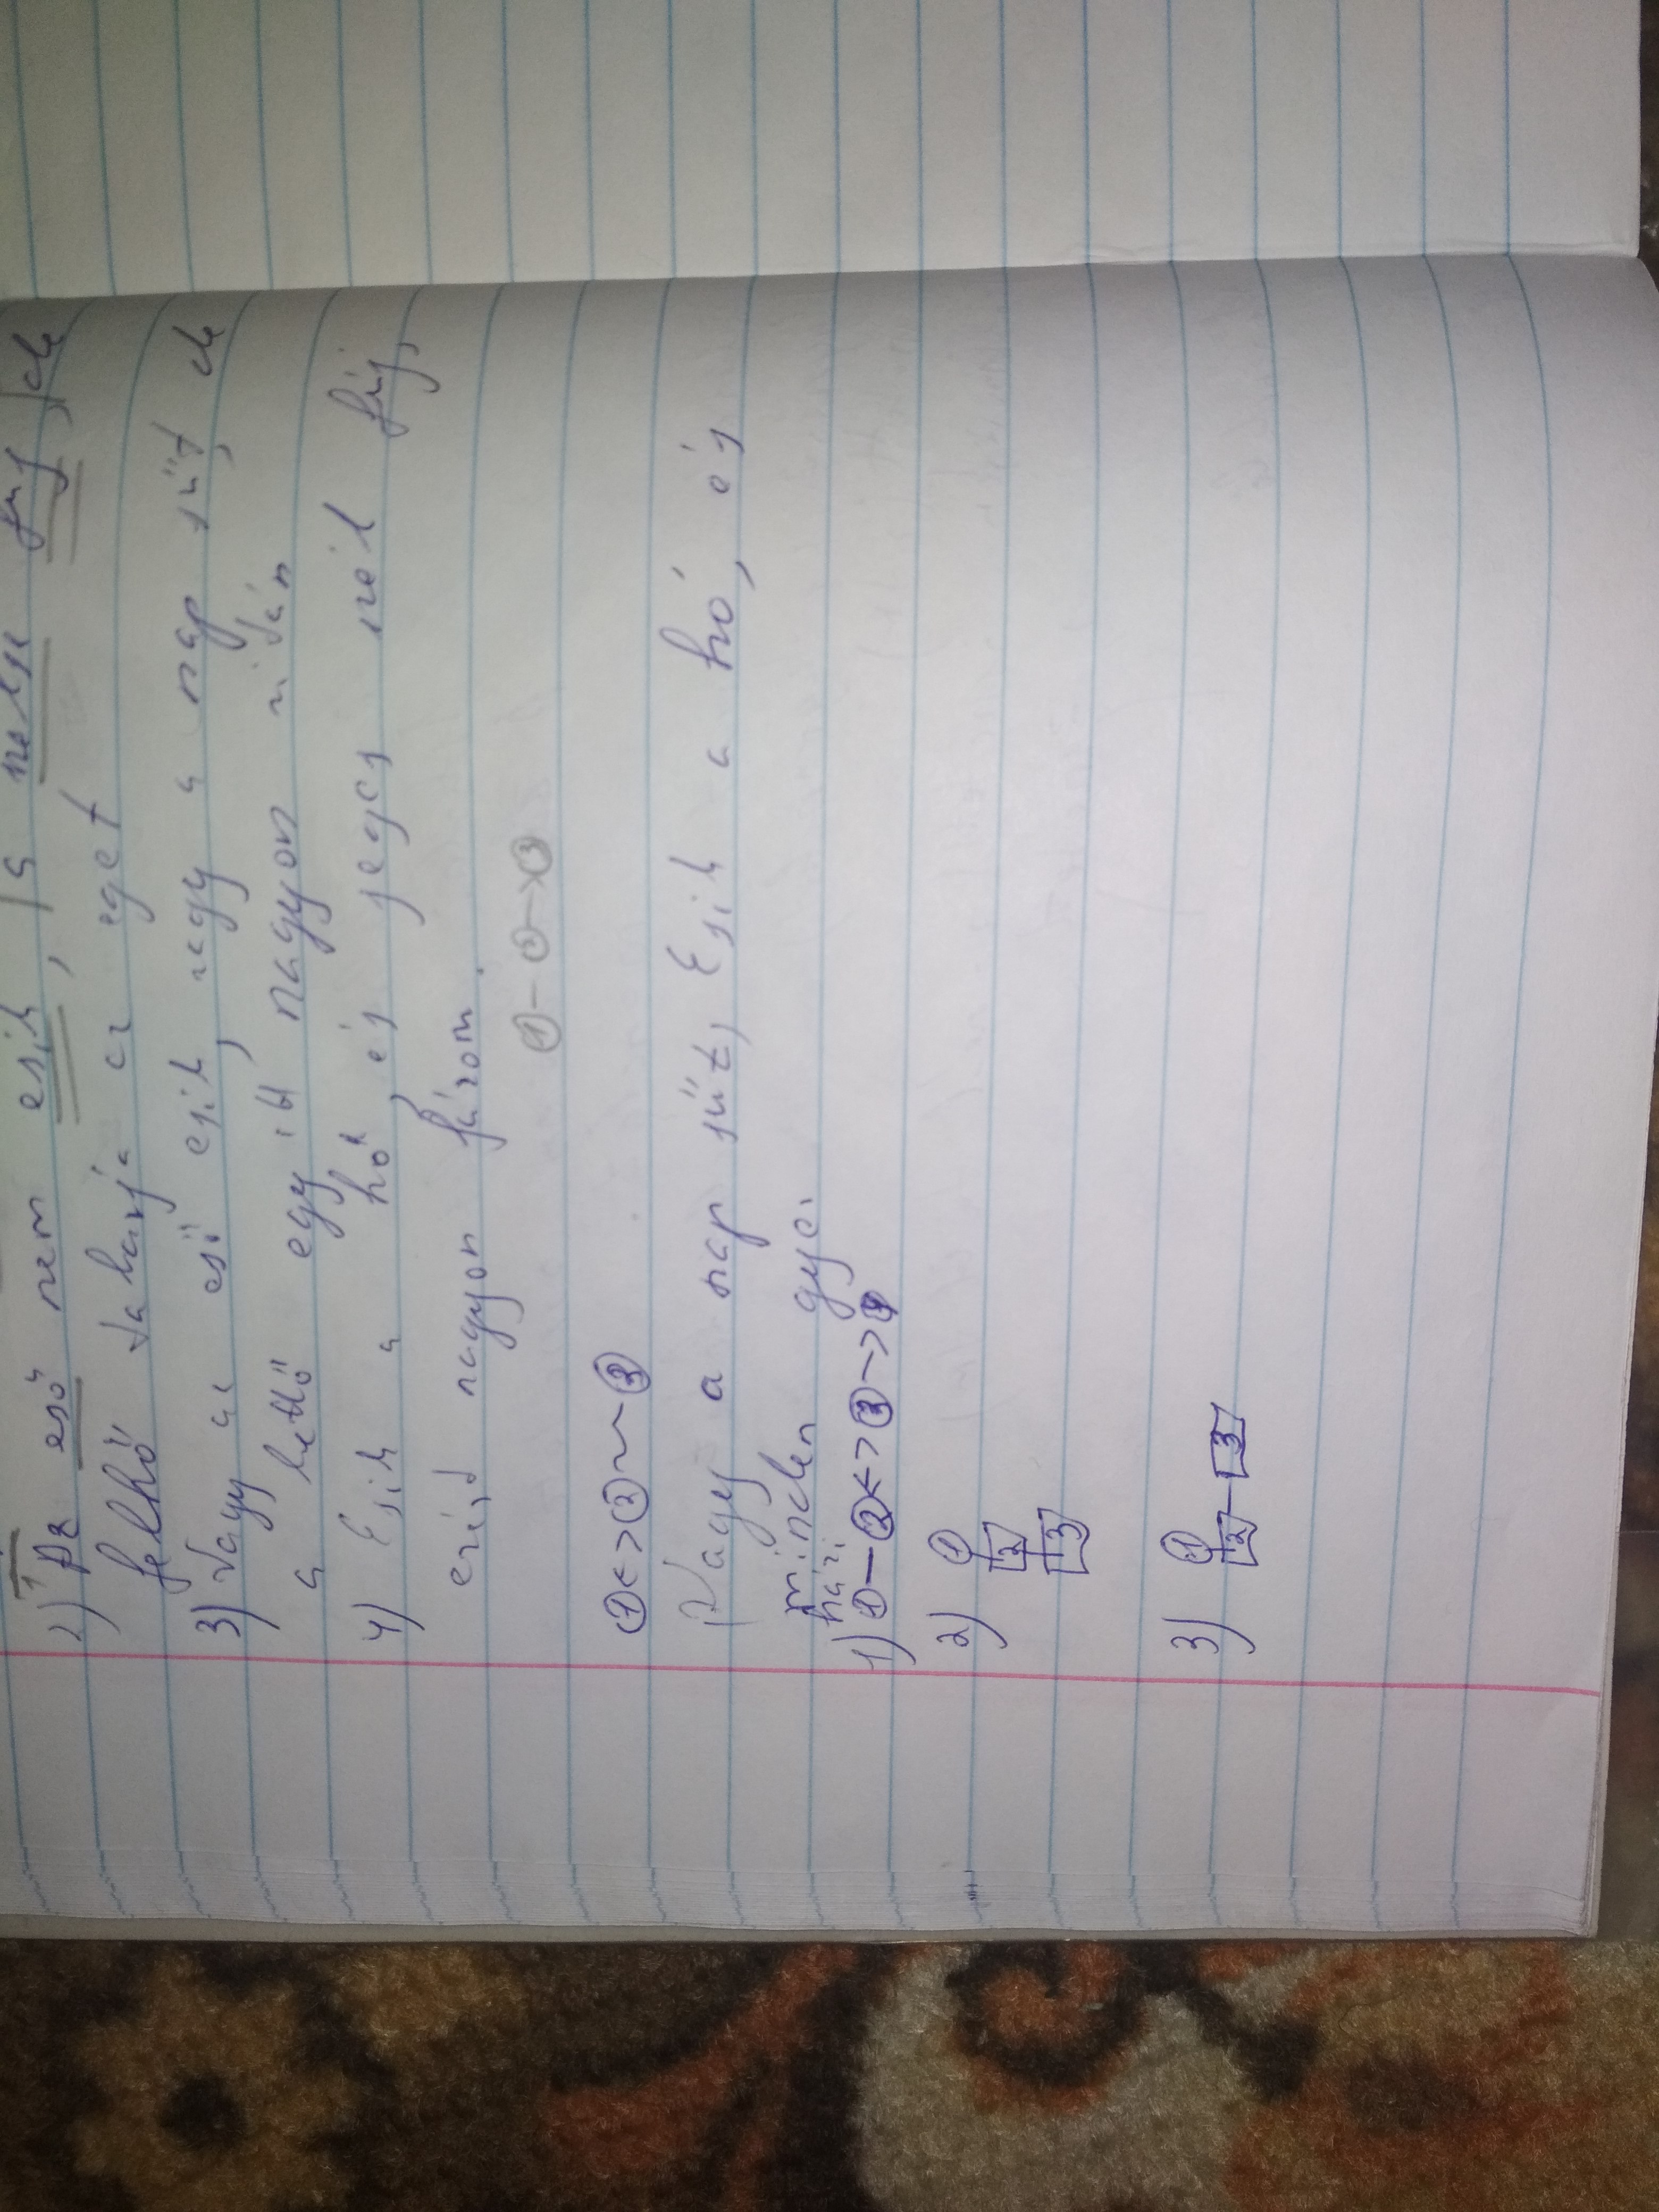 2) Az eső nem esik, a messze fúj, de
felhő takarja az eget
3) Vagy az eső esik, vagy a nap süt, de
a kettő együtt nagyon ritkán
4) Esik a hó, és jeges szél fúj,
ezért nagyon fázom.
①-②->③
①<>②~③
Vagy a nap süt, Esik a hó, és
minden gyc.
házi
1) ①-②<>③->④
2) ①
2
3
3) ①
2-3